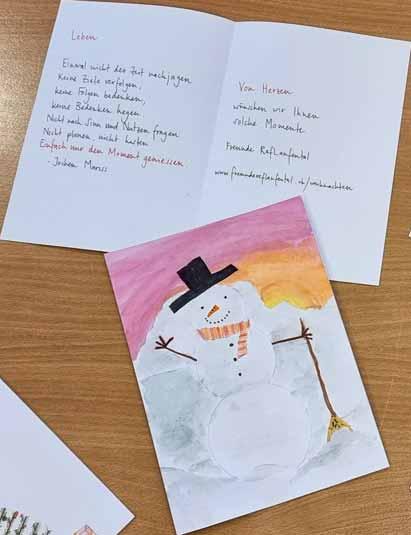 Leben
Einmal nicht der Zeit nachjagen
Keine Ziele verfolgen,
keine Folgen bedenken,
keine Bedenken hegen
Nicht nach Sinn und Nutzen fragen
Nicht planen nicht hasten
Einfach nur den Moment geniessen
- Jochen Mariss
Von Herzen
wünschen wir Ihnen
solche Momente
Freunde RefLanfental
www.freundereflanfental.ch/weihnachten